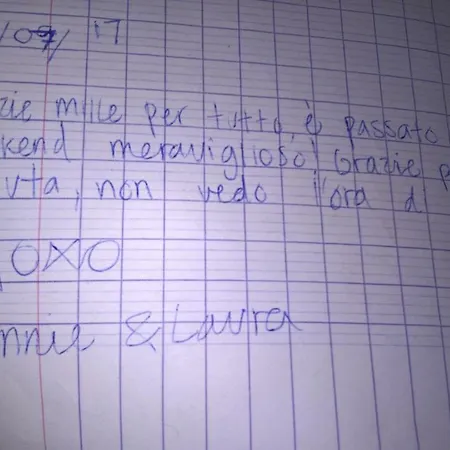 /09/17
zie mille per tutto, è passato
kend meraviglioso! Grazie p
uta, non vedo l'ora d
OXO
nnie & Laura